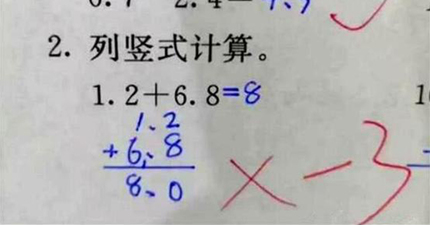 2. 列竖式计算。
1.2+6.8=8
1.2
+6.8
8.0
×-3